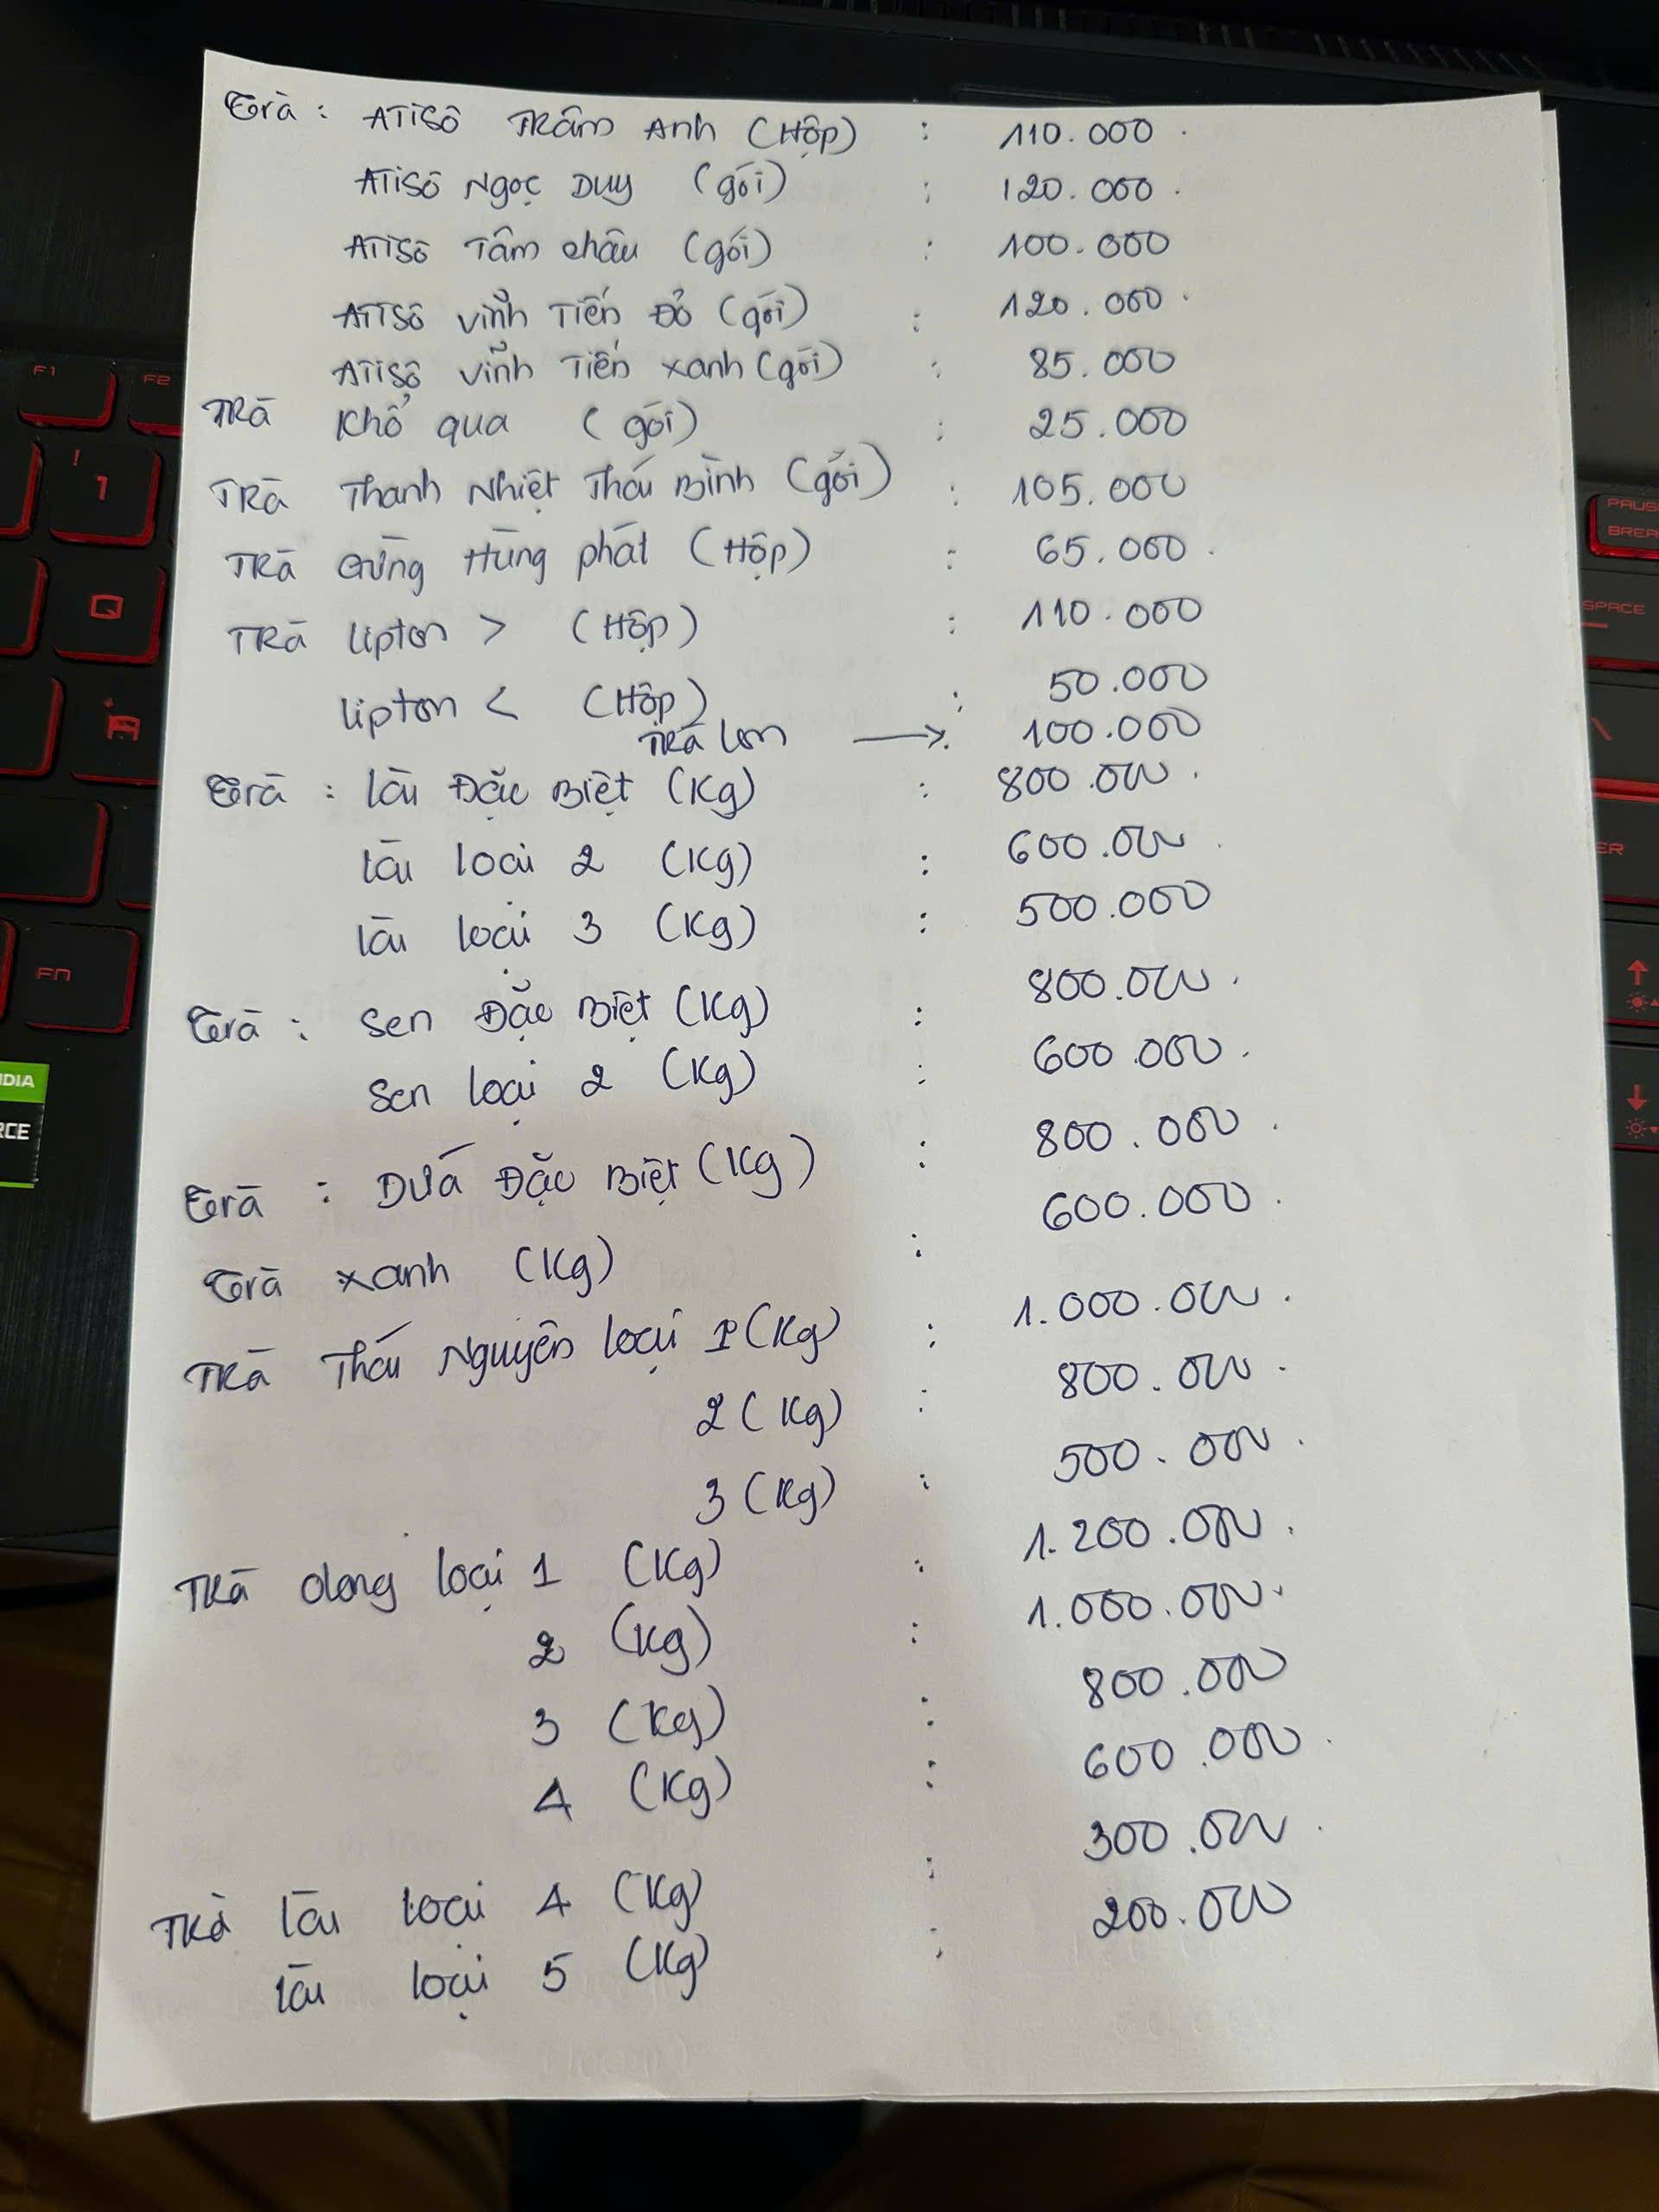 Trà : ATisô Trâm Anh (Hộp) : 110.000
ATisô Ngọc Duy (gói) : 120.000
ATisô Tâm châu (gói) : 100.000
ATisô Vĩnh Tiến Đỏ (gói) : 120.000
ATisô Vĩnh Tiến xanh (gói) : 85.000
Trà Khổ qua (gói) : 25.000
Trà Thanh Nhiệt Thái Bình (gói) : 105.000
Trà Gừng Hùng phát (Hộp) : 65.000
Trà lipton > (Hộp) : 110.000
lipton < (Hộp) : 50.000
Trà lon → : 100.000
Trà : lài Đặc Biệt (Kg) : 800.000
lài loại 2 (Kg) : 600.000
lài loại 3 (Kg) : 500.000
Trà : Sen Đặc Biệt (Kg) : 800.000
Sen loại 2 (Kg) : 600.000
Trà : Dứa Đặc Biệt (Kg) : 800.000
Trà xanh (Kg) : 600.000
Trà Thái Nguyên loại 1 (Kg) : 1.000.000
2 (Kg) : 800.000
3 (Kg) : 500.000
Trà olong loại 1 (Kg) : 1.200.000
2 (Kg) : 1.000.000
3 (Kg) : 800.000
4 (Kg) : 600.000
Trà lài loại 4 (Kg) : 300.000
lài loại 5 (Kg) : 200.000
F1
F2
!
1
Q
FN
PAUS
BREA
SPACE
\
ER
IDIA
RCE